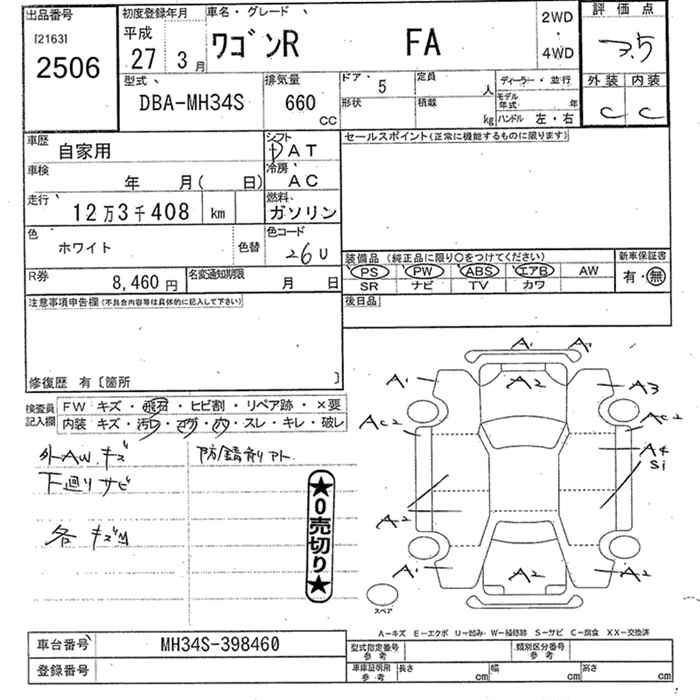 出品番号
[2163]
2506
初度登録年月
平成
27 3月
車名・グレード
ワゴンR FA
2WD
・
4WD
評価点
3.5
外装 内装
C C
型式
DBA-MH34S
排気量
660
CC
ドア・ 5 定員 人
形状 積載 kg
ディーラー・並行
モデル年式 年
ハンドル 左・右
車歴
自家用
シフト
AT
セールスポイント(正常に機能するものに限ります)
車検
年 月( 日)
冷房
AC
走行
12万3千408 km
燃料
ガソリン
色
ホワイト 色替
色コード
26U
装備品(純正品に限り○をつけてください)
新車保証書
PS PW ABS エアB AW
SR ナビ TV カワ
有・無
R券
8,460円
名変通知期限
月 日
後日品
注意事項申告欄(不具合内容等は具体的に記入して下さい)
修復歴 有〔箇所 〕
検査員
記入欄
FW キズ・飛石・ヒビ割・リペア跡・×要
内装 キズ・汚レ・コゲ・穴・スレ・キレ・破レ
外AW キズ
下廻りサビ
防錆剤アト
各 キズ凹
★0売切り★
A1 A1
A1 A2 A3
AC2 AC2
A4
Si
A2
A1 A2 A2
スペア
A-キズ E-エクボ U-凹み W-補修跡 S-サビ C-腐食 XX-交換済
車台番号 MH34S-398460
登録番号
型式指定番号
参考
類別区分番号
参考
車庫証明用
参考
長さ cm 幅 cm 高さ cm